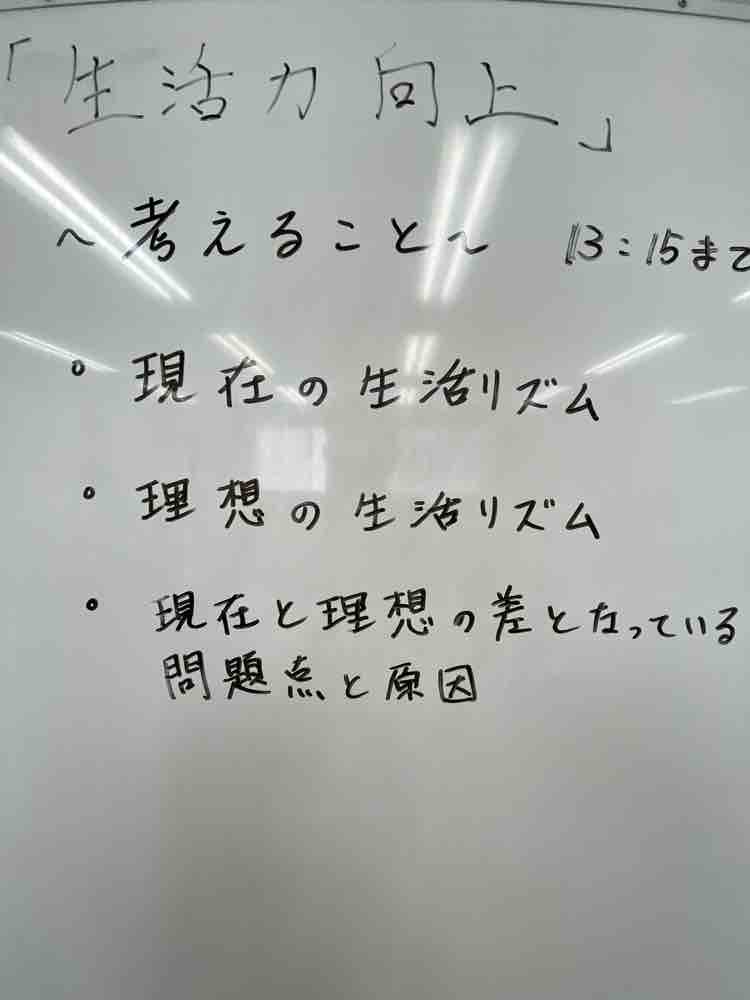 「生活力向上」
~考えること~ 13:15まで
° 現在の生活リズム
° 理想の生活リズム
° 現在と理想の差となっている
問題点と原因